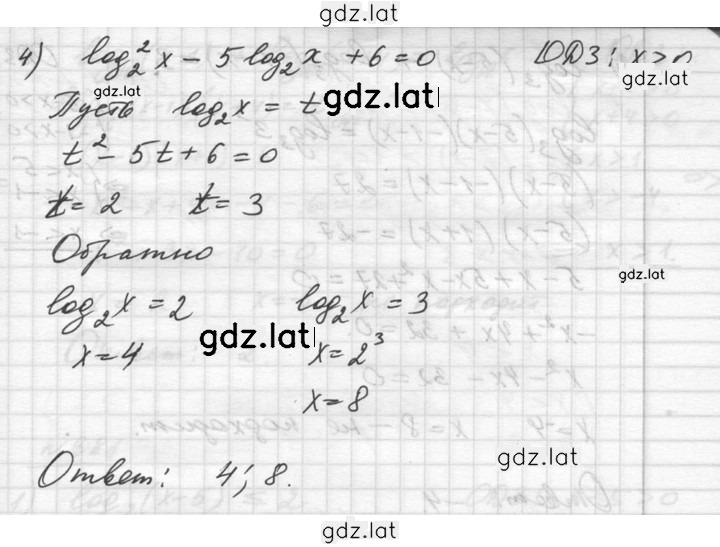 gdz.lat
4) log₂²x − 5 log₂x + 6 = 0 ОДЗ: x > 0
gdz.lat
Пусть log₂x = t
gdz.lat
t² − 5t + 6 = 0
t = 2 t = 3
Обратно
gdz.lat
log₂x = 2 log₂x = 3
gdz.lat
x = 4 x = 2³
x = 8
gdz.lat
Ответ: 4; 8.
gdz.lat